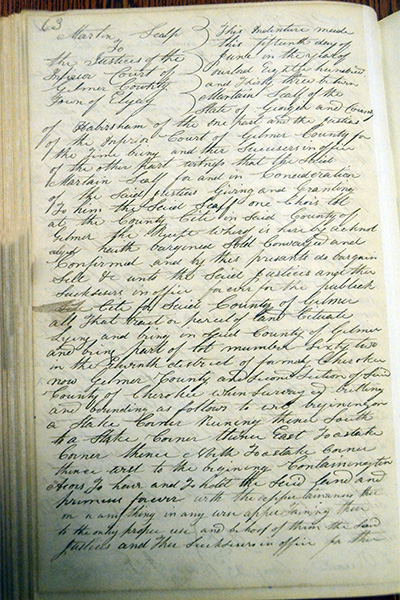 63
Martin Scalf
To
the Justices of the
Inferior Court of
Gilmer County
Town of Elijay
This Indenture made
this fifteenth day of
June in the year of
our lord Eighteen hundred
and thirty three between
Martain Scalf of the
State of Georgia and County
of Habirsham of the one part and the Justices
of the Inferior Court of Gilmer County for
the time being and ther Successers in office
of the other Part witness that the said
Martain Scalf for and in Consideration
of the Said Justices Giving and Granting
To him the Said Scalf one Chois lot
at the County Cite in Said County of
Gilmer the Receipt Whereof is here by acknol
hath bargened Sold Convayed and
Confirmed and by thes presants do bargain
Sell &c unto the Said Justices and ther
Suckseirs in office forevr for the publick
Cite for Said County of Gilmer
all That tract or parcel of land Cituate
Lying and being in Said County of Gilmer
and being part of lot number Sixty two
in the Eleventh district of formerly Cherokee
now Gilmer County and Second Section of Said
County of Cherokee when surveyed
and bounding as follows to wit begining on
a Stake Corner Runing thence South
to a Stake Corner thence East To a stake
Corner thence North To a stake Corner
thence west to the begining Containing ten
Acors To have and To hold the Said land and
primises forevr with the appertainances ther
on in any thing in any wise appertaining ther
to the only proper use and behoof of them the Said
Justices and Ther Suckseirs in office for ther